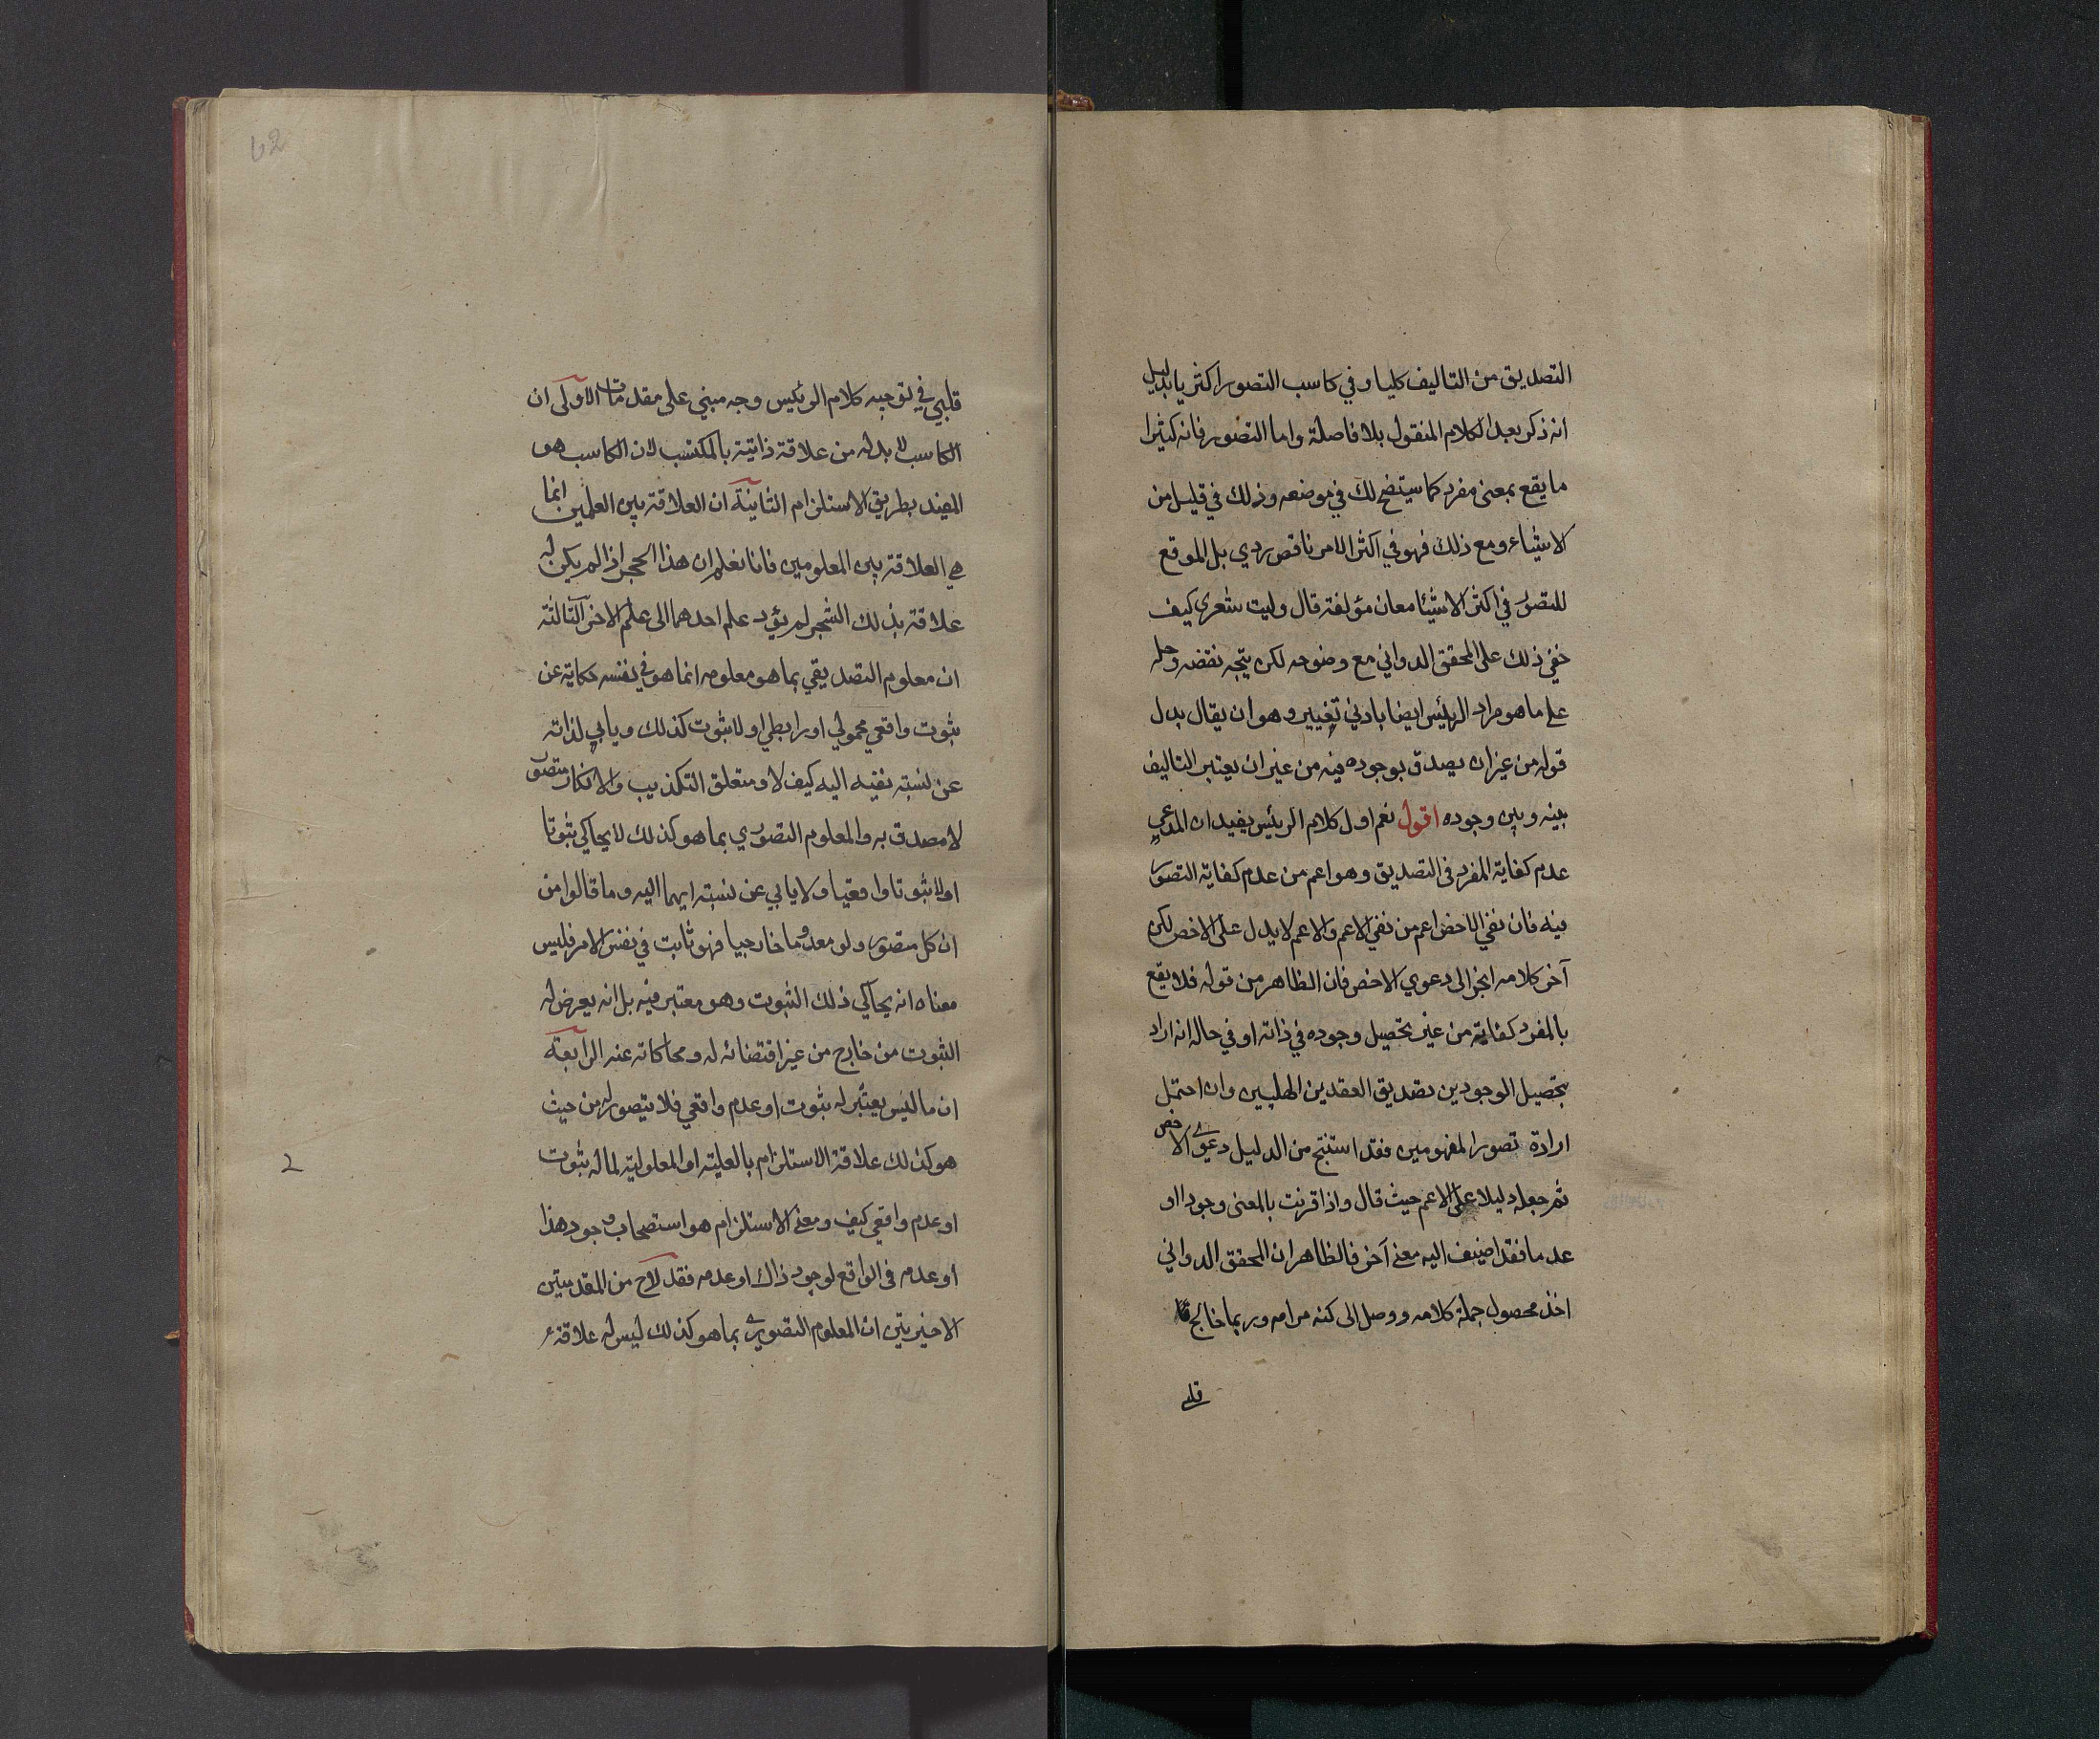 التصديق من التاليف كليا وفي كاسب التصور اكثريا بدليل
انه ذكر بعد الكلام المنقول بلا فاصلة واما التصور فانه كثيرا
ما يقع بمعنى مفرد كما سيتضح لك في موضعه وذلك في قليل من
الاشياء ومع ذلك فهو في اكثر الامر ناقص ردي بل الموقع
للتصور في اكثر الاشيئا معان مؤلفة قال وليت شعري كيف
خفي ذلك على المحقق الدواني مع وضوحه لكن يتجه نقضه وحله
على ما هو مراد الرئيس ايضا بادني تغيير وهو ان يقال بدل
قوله من غير ان يصدق بوجوده فيه من غير ان يعتبر التاليف
بينه وبين وجوده اقول نعم اول كلام الرئيس يفيد ان المدعي
عدم كفاية المفرد في التصديق وهو اعم من عدم كفاية التصور
فيه فان نفي الاخص اعم من نفي الاعم والاعم لا يدل على الاخص لكن
آخر كلامه انجر الى دعوي الاخص فان الظاهر من قوله فلا يقع
بالمفرد كفاية من غير تحصيل وجوده في ذاته او في حاله انه اراد
بتحصيل الوجودين تصديق العقدين الهليين وان احتمل
ارادة تصور المفهومين فقد استنتج من الدليل دعوى الاخص
ثم جعله دليلا على الاعم حيث قال واذا قرنت بالمعنى وجودا او
عدما فقد اضيف اليه معنے آخر فالظاهر ان المحقق الدواني
اخذ محصول جملة كلامه ووصل الى كنه مرامه وربما خالج
قلبي
62
قلبي في توجيه كلام الرئيس وجه مبني على مقدمات الاولى ان
الكاسب لا بد له من علاقة ذاتية بالمكتسب لان الكاسب هو
المفيد بطريق الاستلزام الثانية ان العلاقة بين العلمين انما
هي العلاقة بين المعلومين فانا نعلم ان هذا الحجر اذا لم يكن له
علاقة بذلك الشجر لم يؤد علم احدهما الى علم الاخر الثالثة
ان معلوم التصديقي بما هو معلومه انما هو في نفسه حكاية عن
ثبوت واقعي محمولي او رابطي او لا ثبوت كذلك ويابي لذاته
عن نسبة نفيه اليه كيف لا ومتعلق التكذيب والانكار متصور
لا مصدق به والمعلوم التصوري بما هو كذلك لا يحاكي ثبوتا
او لا ثبوتا واقعيا ولا يابي عن نسبة ايهما اليه وما قالوا من
ان كل متصور ولو معدوما خارجيا فهو ثابت في نفس الامر فليس
معناه انه يحاكي ذلك الثبوت وهو معتبر فيه بل انه يعرض له
الثبوت من خارج من غير اقتضائه له ومحاكاته عنه الرابعة
ان ما ليس يعتبر له ثبوت او عدم واقعي فلا يتصور له من حيث
هو كذلك علاقة الاستلزام بالعلية او المعلولية لما له ثبوت
او عدم واقعي كيف ومعنے الاستلزام هو استصحاب وجود هذا
او عدمه في الواقع لوجود ذاك او عدمه فقد لاح من المقدمتين
الاخيرتين ان المعلوم التصوري بما هو كذلك ليس له علاقة